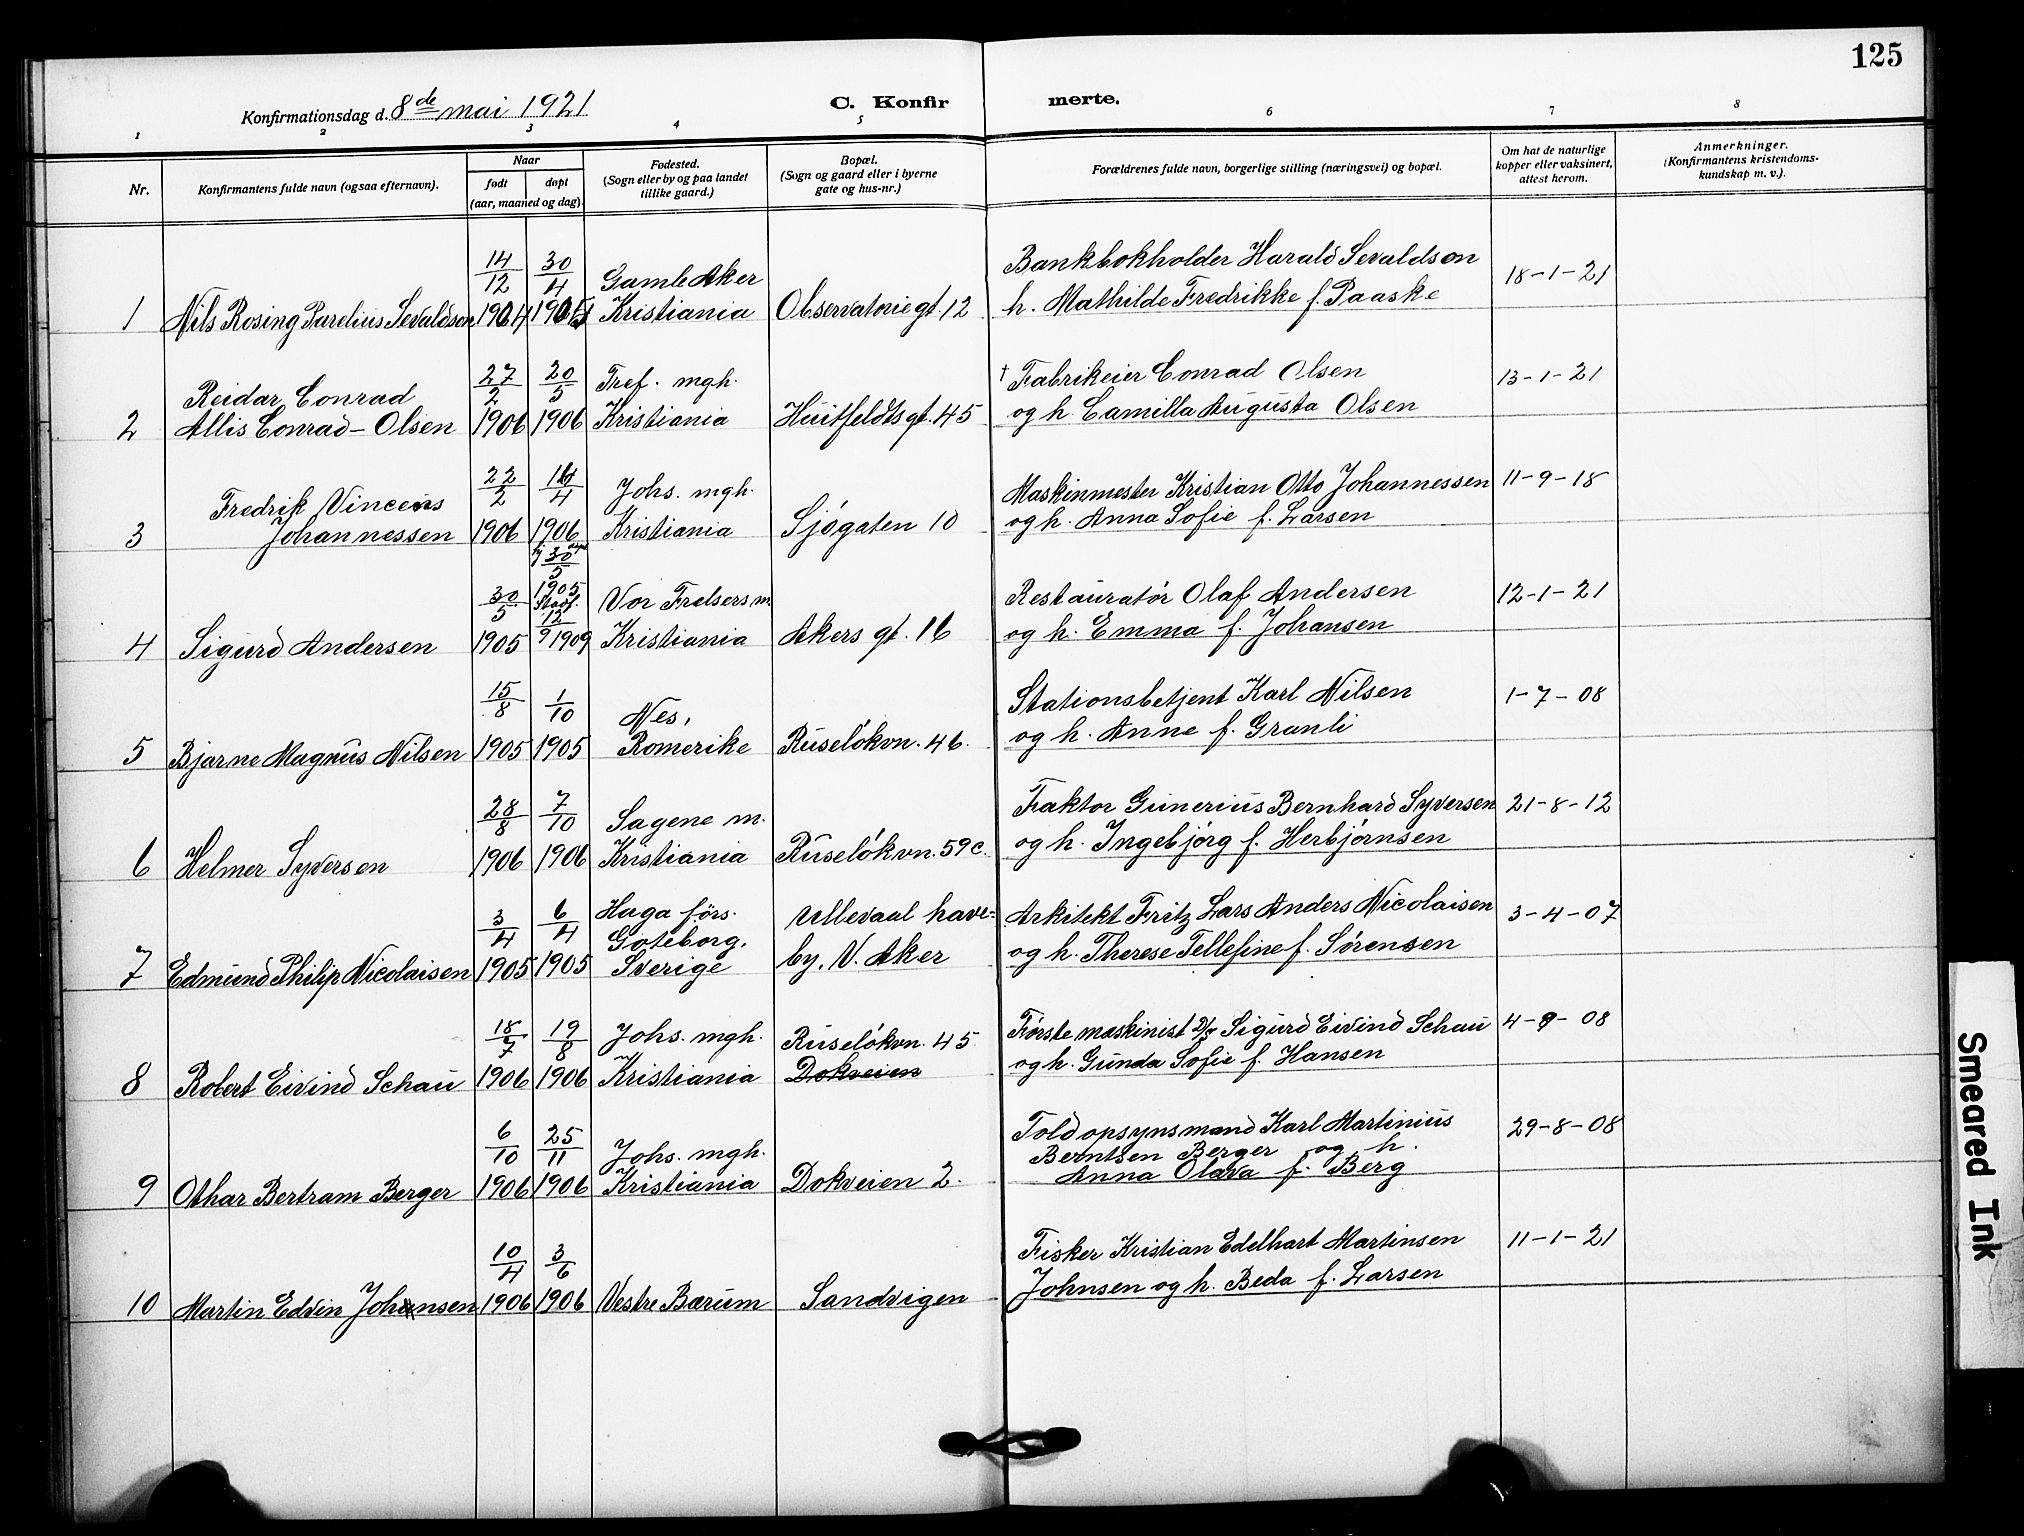 125
Konfirmationsdag d. 8de mai 1921
C. Konfirmerte.
1 2 3 4 5 6 7 8
Nr.
Konfirmantens fulde navn (ogsaa efternavn).
Naar
født
døpt
(aar, maaned og dag).
Fødested.
(Sogn eller by og paa landet
tillike gaard.)
Bopæl.
(Sogn og gaard eller i byerne
gate og hus-nr.)
Forældrenes fulde navn, borgerlige stilling (næringsvei) og bopæl.
Om hat de naturlige
kopper eller vaksinert,
attest herom.
Anmerkninger.
(Konfirmantens kristendoms-
kundskap m. v.).
1 Nils Rosing Parelius Sevaldson
14/12 1904
30/4 1905
Gamle Aker
Kristiania
Observatoriegt. 12
Bankbokholder Harald Sevaldson
h. Mathilde Fredrikke f. Paaske
18-1-21
2 Reidar Conrad
Allis Conrad-Olsen
27/2 1906
20/5 1906
Tref. mgh.
Kristiania
Huitfeldtsgt. 45
† Fabrikeier Conrad Olsen
og h. Camilla Augusta Olsen
13-1-21
3 Fredrik Vincens
Johannessen
22/2 1906
/4 1906
Johs. mgh.
Kristiania
Sjøgaten 10
Maskinmester Kristian Otto Johannessen
og h. Anna Sofie f. Larsen
11-9-18
4 Sigurd Andersen
30/5 1905
30/5
1905
Stadf.
12/9 1909
Vor Frelsers m.
Kristiania
Akers gt. 16
Restauratør Olaf Andersen
og h. Emma f. Johansen
12-1-21
5 Bjarne Magnus Nilsen
15/8 1905
1/10 1905
Nes,
Romerike
Ruseløkvn. 46.
Stationsbetjent Karl Nilsen
og h. Anne f. Granli
1-7-08
6 Helmer Syversen
28/8 1906
7/10 1906
Sagene m.
Kristiania
Ruseløkvn. 59c.
Faktor Gunerius Bernhard Syversen
og h. Ingebjørg f. Herbjørnsen
21-8-12
7 Edmund Philip Nicolaisen
3/4 1905
6/4 1905
Haga förs.
Goteborg,
Sverige
Ullevaal have=
by, V. Aker
Arkitekt Fritz Lars Anders Nicolaisen
og h. Therese Tellefine f. Sørensen
3-4-07
8 Robert Eivind Schau
18/7 1906
19/8 1906
Johs. mgh.
Kristiania
Ruseløkvn. 45
Dokveien
Første maskinist D/S Sigurd Eivind Schau
og h. Gunda Sofie f. Hansen
4-9-08
9 Othar Bertram Berger
6/10 1906
25/11 1906
Johs. mgh.
Kristiania
Dokveien 2.
Toldopsynsmand Karl Martinius
Berntsen Berger og h.
Anna Olava f. Berg
29-8-08
10 Martin Edvin Johnsen
10/4 1906
3/6 1906
Vestre Bærum
Sandvigen
Fisker Kristian Edelhart Martinsen
Johnsen og h. Beda f. Larsen
11-1-21
Smeared Ink